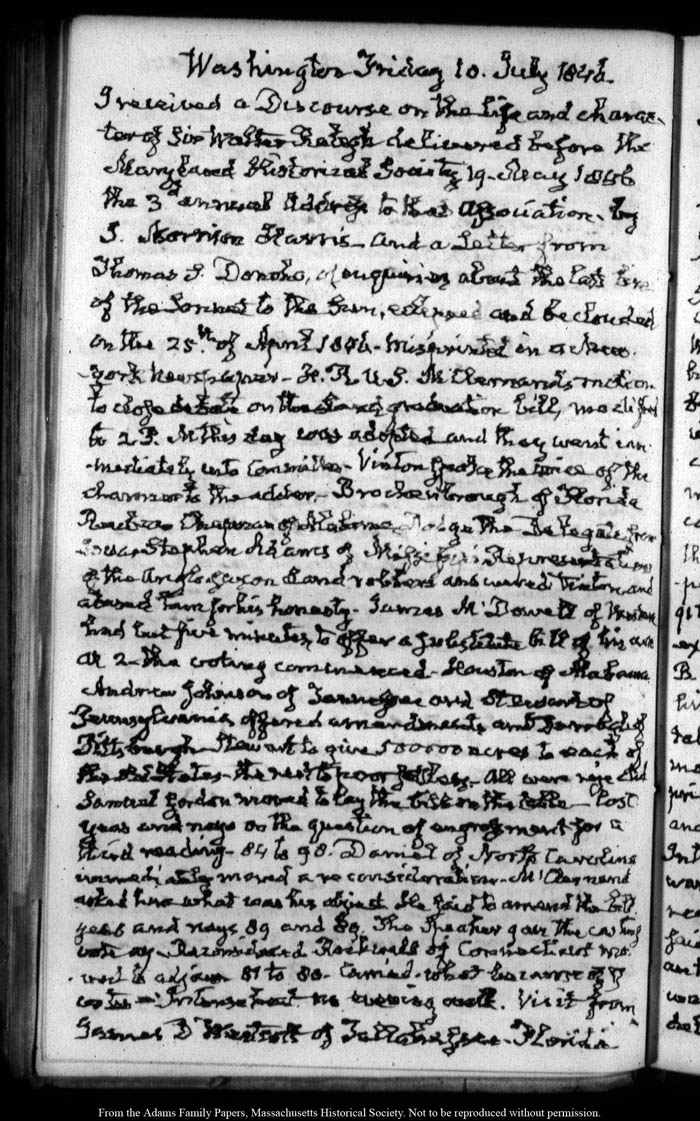 Washington Friday 10. July 1846.
I received a Discourse on the life and charac-
ter of Sir Walter Raleigh delivered before the
Maryland Historical Society 19. May 1846
the 3d annual Address to that Association - by
J. Morrison Harris - and a Letter from
Thomas J. Donoho, enquiring about the last line
of the Sonnet to the Sun, eclipsed and beclouded
on the 25th of April 1846 - misprinted in a New-
York newspaper - H. R. U. S. McClernand's motion
to close debate on the land graduation bill, modified
to 2 P. M this day was adopted and they went im-
mediately into Committee - Vinton spoke the voice of the
charmer to the adder - Brockenbrough of Florida
Reuben Chapman of Alabama Dodge the Delegate from
Iowa Stephen Adams of Mississippi Representatives
of the Anglo Saxon Land robbers answered Vinton and
abused him for his honesty - James McDowell of
had but five minutes to offer a substitute bill of his own
At 2 - the voting commenced - Houston of Alabama
Andrew Johnson of Tennessee and Stewart of
Pennsylvania offered amendments and
Pittsburgh Stewart to give 500000 acres to each of
the States - the rest to poor All were rejected
Samuel Gordon moved to lay the bill on the table - lost
yeas and nays on the question of engrossment for a
third reading - 84 to 98. Daniel of North Carolina
immediately moved a reconsideration - McClernand
asked him what was his object. He said to amend the bill
yeas and nays 89 and 89. The Speaker gave the casting
vote ay - Reconsidered Rockwell of Connecticut mo-
ved to adjourn 81 to 80 - Carried - what became of
votes - Intense heat no evening walk. Visit from
James D Westcott of Tallahassee - Florida